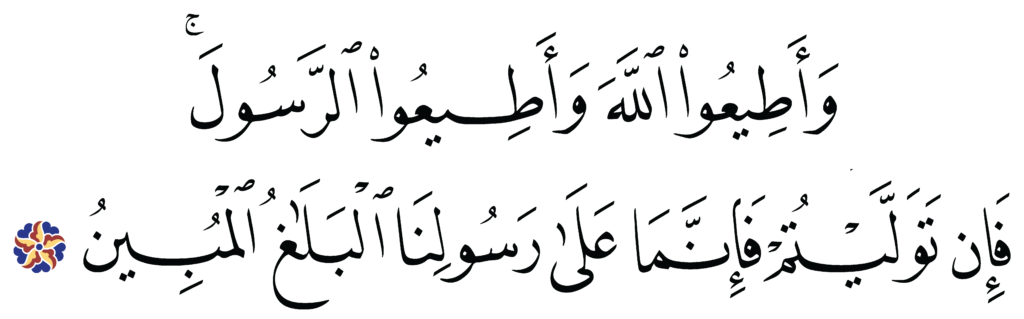 وَأَطِيعُوا۟ ٱللَّهَ وَأَطِيعُوا۟ ٱلرَّسُولَ ۚ
فَإِن تَوَلَّيْتُمْ فَإِنَّمَا عَلَىٰ رَسُولِنَا ٱلْبَلَٰغُ ٱلْمُبِينُ